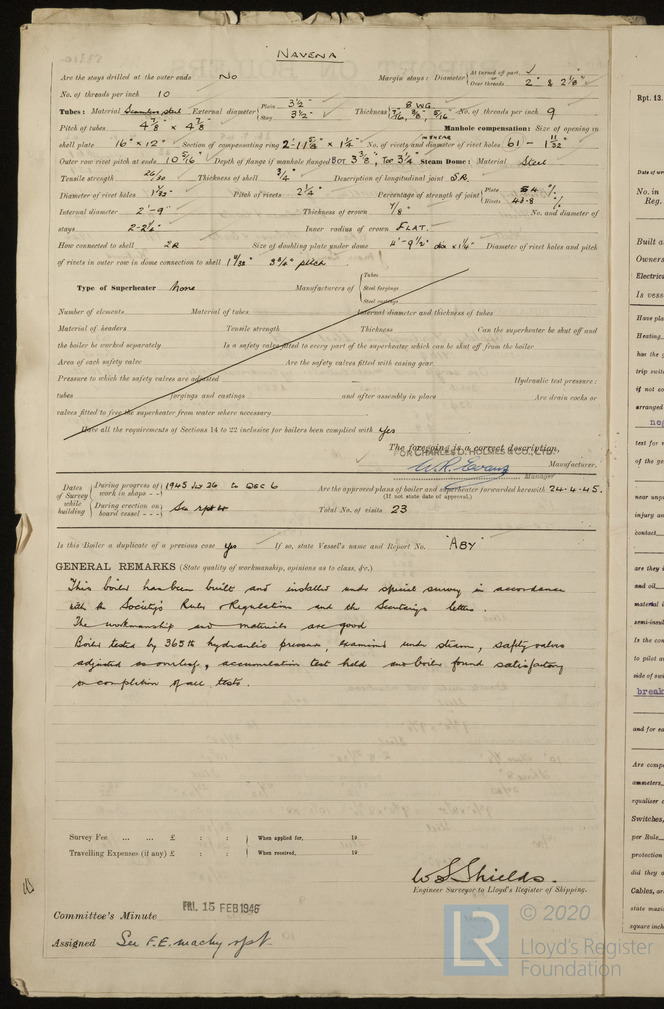 NAVENA
Are the stays drilled at the outer ends No Margin stays: Diameter { At turned off part, Over threads 2" & 2 1/8"
No. of threads per inch 10
Tubes: Material Seamless steel External diameter { Plain 3 1/2" Stay 3 1/2" Thickness { 8 WG 5/16" No. of threads per inch 9
Pitch of tubes 4 7/8" × 4 7/8" Manhole compensation: Size of opening in
shell plate 16" × 12" Section of compensating ring × 1 1/4" No. of rivets and diameter of rivet holes 61 - 1 11/32"
Outer row rivet pitch at ends 10 5/16" Depth of flange if manhole flanged BOT 3 3/8", TOP 3 1/4" Steam Dome: Material Steel
Tensile strength 26/30 Thickness of shell 3/4" Description of longitudinal joint S.R.
Diameter of rivet holes Pitch of rivets 2 1/4" Percentage of strength of joint { Plate 54 % Rivets 43.8 %
Internal diameter 2'-9" Thickness of crown 7/8" No. and diameter of
stays 2-2 1/2" Inner radius of crown FLAT.
How connected to shell 2R Size of doubling plate under dome 4'-9 1/2" dia × 1 1/4" Diameter of rivet holes and pitch
of rivets in outer row in dome connection to shell 3 3/4" pitch
Type of Superheater None Manufacturers of { Tubes Steel forgings Steel castings
Number of elements Material of tubes Internal diameter and thickness of tubes
Material of headers Tensile strength Thickness Can the superheater be shut off and
the boiler be worked separately Is a safety valve fitted to every part of the superheater which can be shut off from the boiler
Area of each safety valve Are the safety valves fitted with easing gear
Pressure to which the safety valves are adjusted Hydraulic test pressure:
tubes forgings and castings and after assembly in place Are drain cocks or
valves fitted to free the superheater from water where necessary
Have all the requirements of Sections 14 to 22 inclusive for boilers been complied with yes
The foregoing is a correct description,
FOR CHARLES D. HOLMES & CO., LTD.
W.R. Evans Manufacturer.
Manager
Dates of Survey while building { During progress of work in shops - - } 1945 Jy 26 to Dec 6 Are the approved plans of boiler and superheater forwarded herewith 24-4-45.
(If not state date of approval.)
{ During erection on board vessel - - - } See rpt 4 Total No. of visits 23
Is this Boiler a duplicate of a previous case yes If so, state Vessel's name and Report No. "ABY"
GENERAL REMARKS (State quality of workmanship, opinions as to class, &c.)
This boiler has been built and installed under special survey in accordance
with the Society's Rules & Regulations and the Secretary's letters.
The workmanship and materials are good
Boiler tested by 365 lb hydraulic pressure, examined under steam, safety valves
adjusted as overleaf, accumulation test held and boiler found satisfactory
on completion of all tests.
Survey Fee ... ... £ : : { When applied for, 19
Travelling Expenses (if any) £ : : { When received, 19
W S Shields.
Engineer Surveyor to Lloyd's Register of Shipping.
Committee's Minute FRI. 15 FEB 1946
Assigned See F.E. machy rpt.
Rpt. 13.
Date of wr
No. in
Reg.
Built a
Owners
Electrica
Is vess
Have pla
Heating
has the g
trip swit
if not co
arranged
neg
test for
of the ge
near unp
injury an
contact
are they i
and oil
material i
semi-insul
Is the con
to pilot a
side of sw
break
and for ea
Are compe
ammeters,
equaliser c
Switches,
per Rule
protection
did they o
Cables, ar
state maxi
square inch
LR
© 2020
Lloyd's Register
Foundation